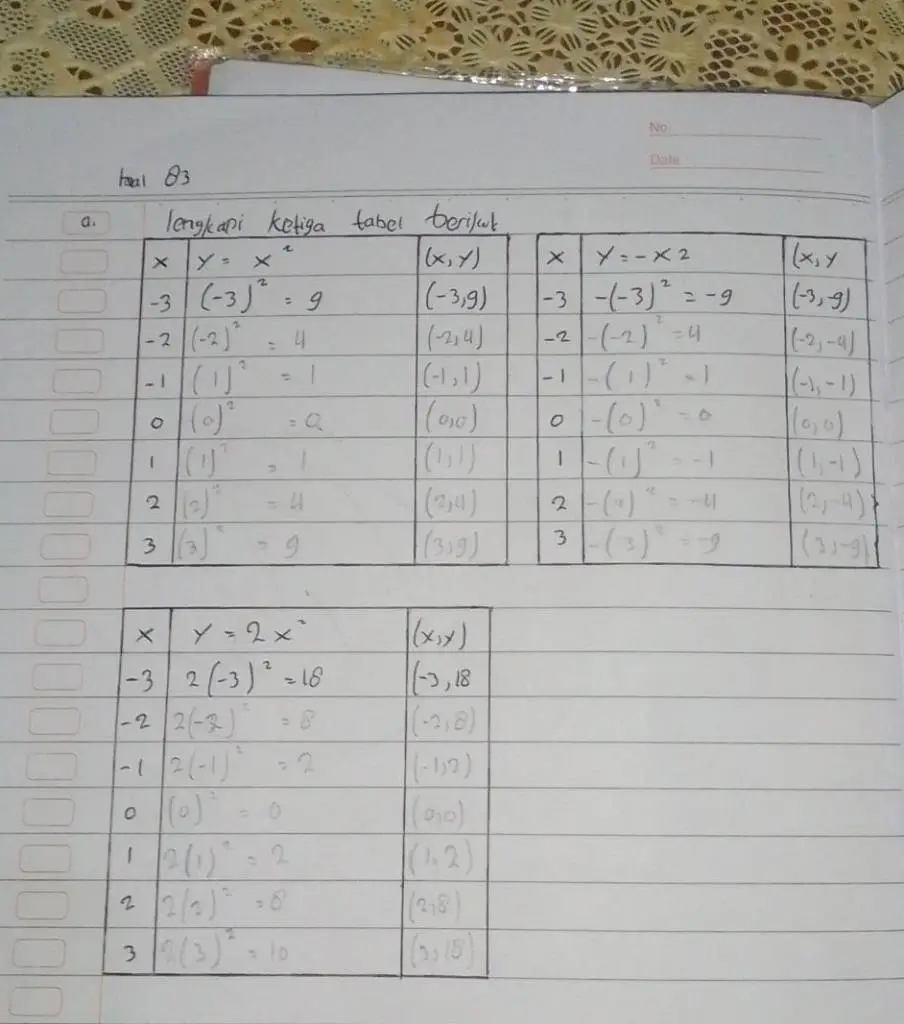 No
Date
hal 83
a. lengkapi ketiga tabel berikut
x y = x² (x,y)
-3 (-3)² = 9 (-3,9)
-2 (-2)² = 4 (-2,4)
-1 (1)² = 1 (-1,1)
0 (0)² = 0 (0,0)
1 (1)² = 1 (1,1)
2 (2)² = 4 (2,4)
3 (3)² = 9 (3,9)
x y = -x2 (x,y
-3 -(-3)² = -9 (-3,-9)
-2 -(-2)² = 4 (-2,-4)
-1 -(1)² = 1 (-1,-1)
0 -(0)² = 0 (0,0)
1 -(1)² = -1 (1,-1)
2 -(2)² = -4 (2,-4)
3 -(3)² = -9 (3,-9)
x y = 2x² (x,y)
-3 2(-3)² = 18 (-3,18
-2 2(-2)² = 8 (-2,8)
-1 2(-1)² = 2 (-1,2)
0 (0)² = 0 (0,0)
1 2(1)² = 2 (1,2)
2 2(2)² = 8 (2,8)
3 2(3)² = 10 (3,18)